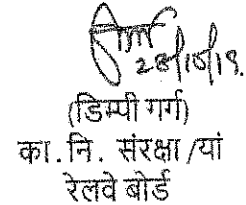 28/10/19.
(डिम्पी गर्ग)
का. नि. संरक्षा/यां
रेलवे बोर्ड